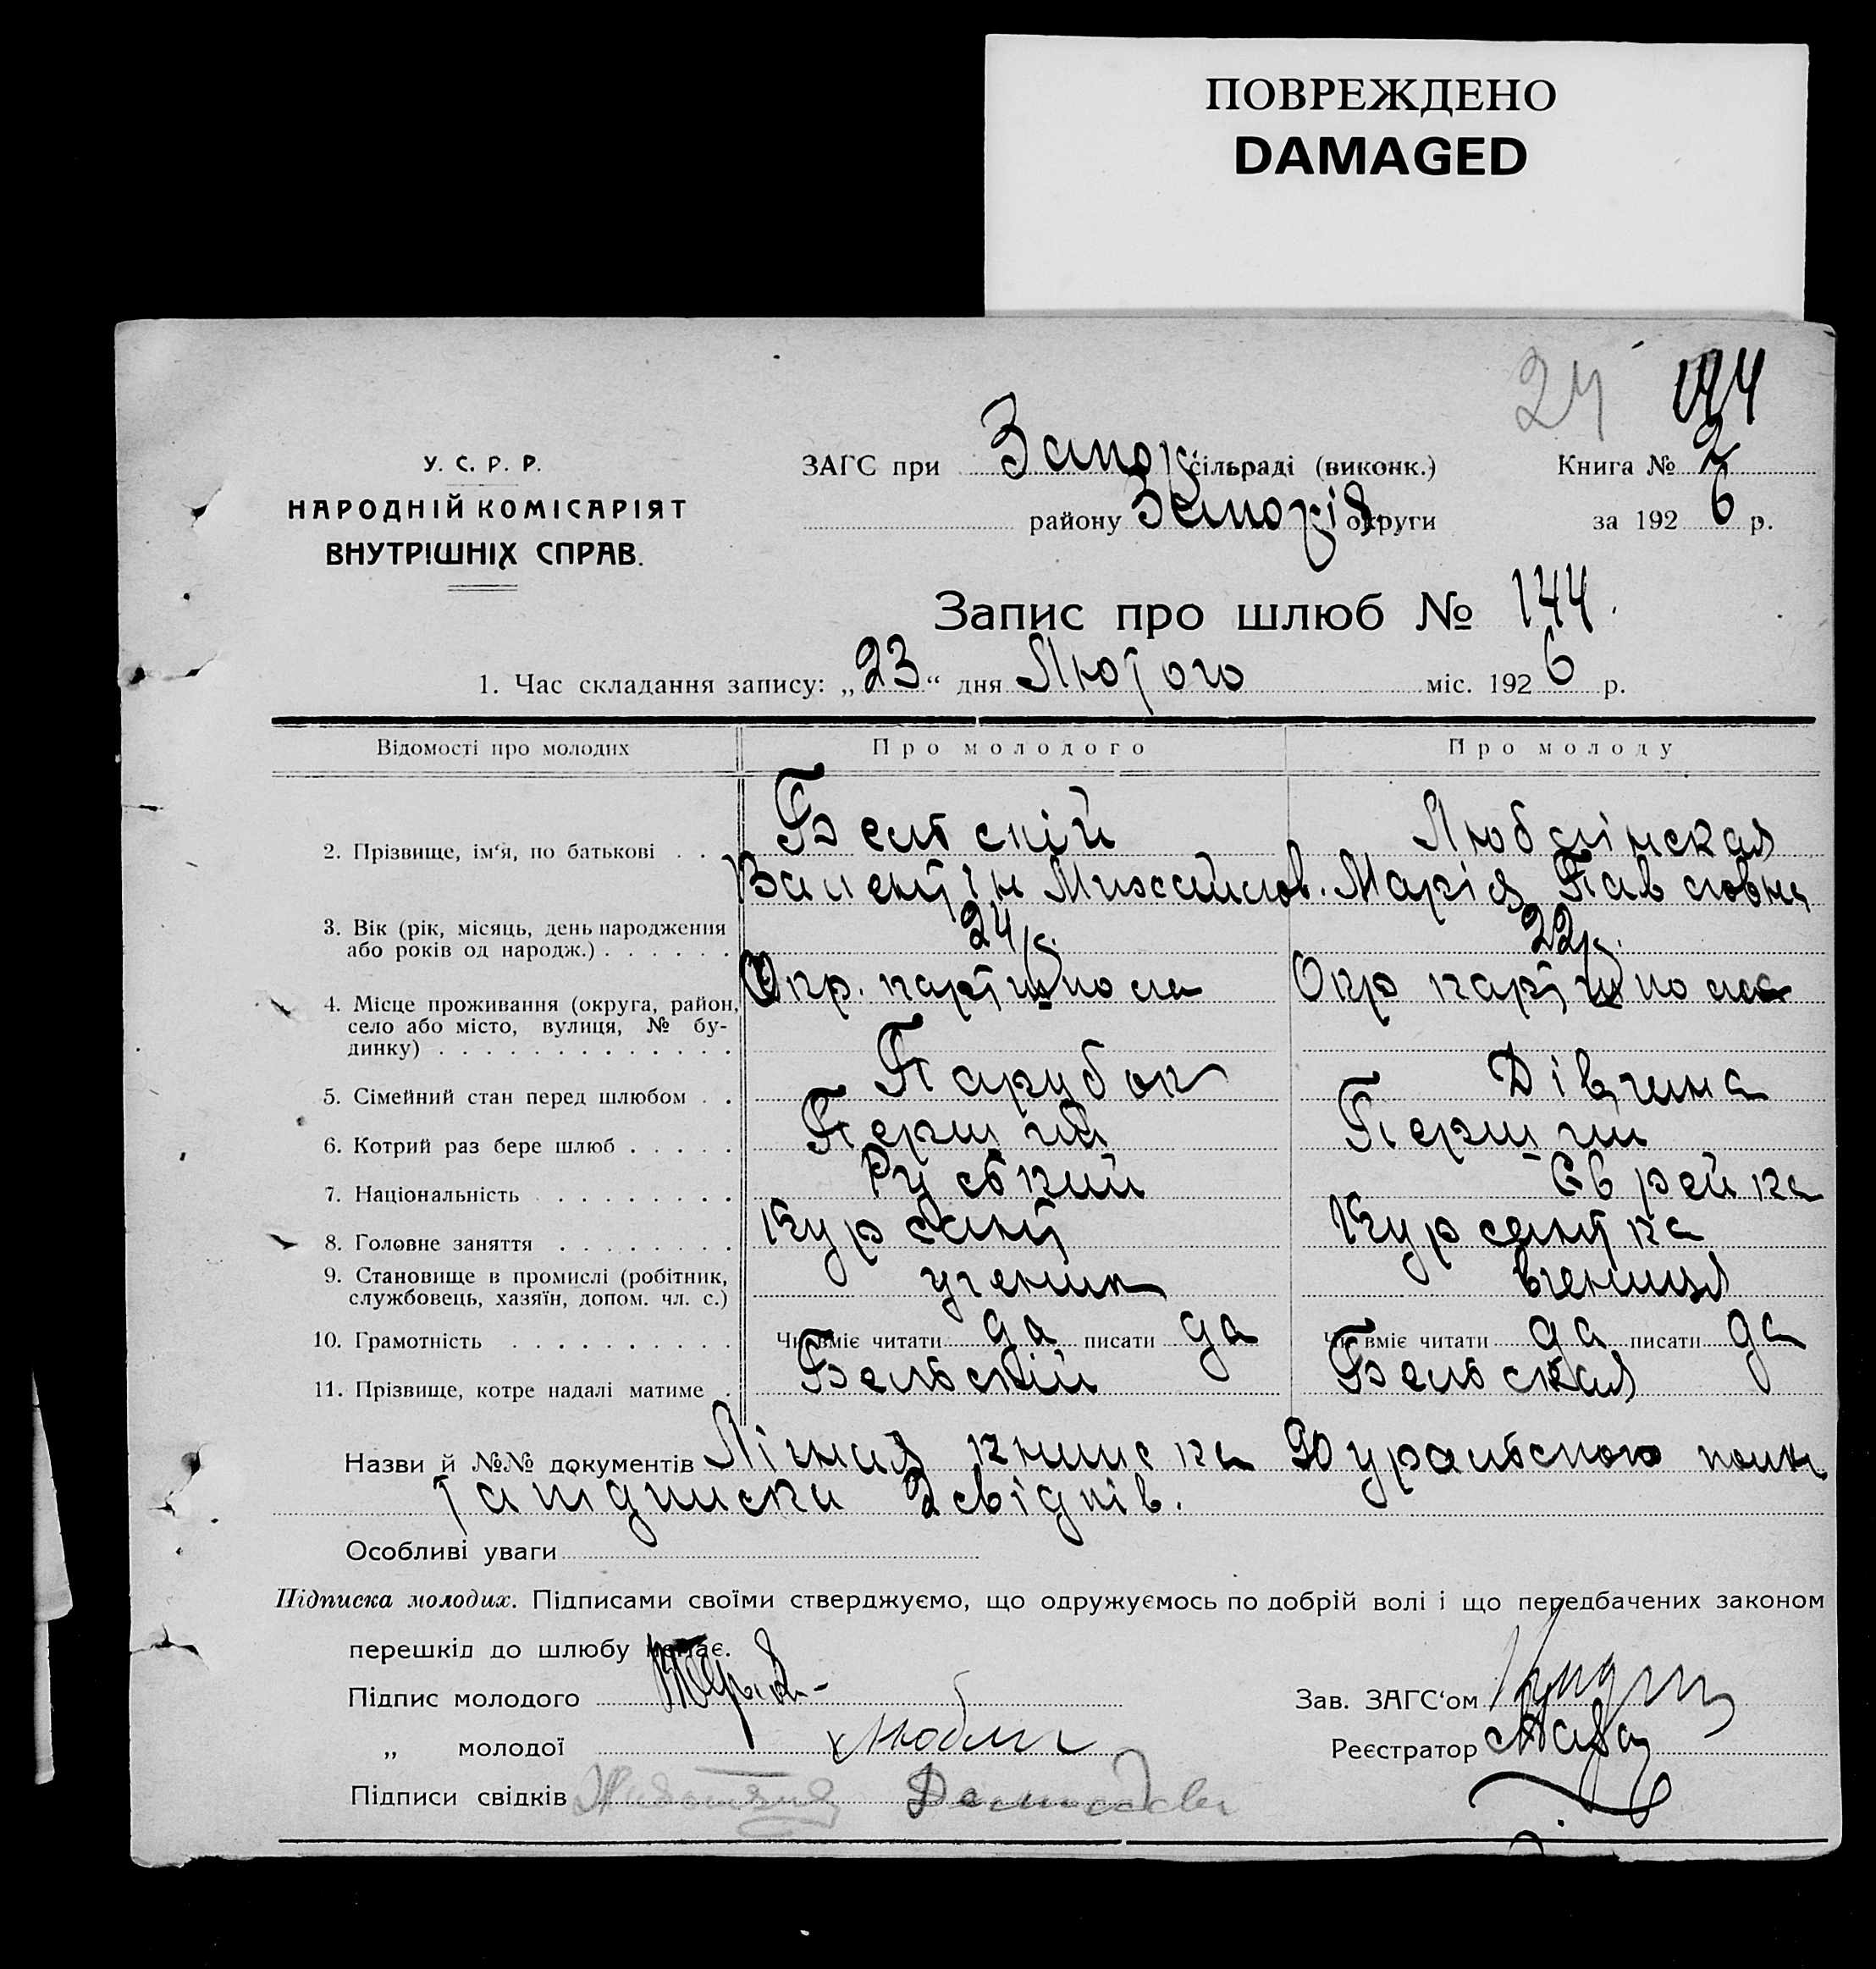 ПОВРЕЖДЕНО
DAMAGED
24
У. С. Р. Р.
НАРОДНІЙ КОМІСАРІЯТ
ВНУТРІШНІХ СПРАВ.
ЗАГС при Запор сільраді (виконк.)
Книга № 2
району Запоріз округи
за 1926 р.
Запис про шлюб № 144.
1. Час складання запису: „23“ дня Лютого міс. 1926 р.
Відомості про молодих
Про молодого
Про молоду
2. Прізвище, ім‘я, по батькові . .
Бельскій
Валентін Михайлов.
Люблінская
Марія Павловна
3. Вік (рік, місяць, день народження
або років од народж.) . . . . . .
24 р.
22 р.
4. Місце проживання (округа, район,
село або місто, вулиця, № бу-
динку) . . . . . . . . . . . . .
Окр. партшкола
Окр партшкола
5. Сімейний стан перед шлюбом . .
Парубок
Дівчина
6. Котрий раз бере шлюб . . . . .
Перший
Перший
7. Національність . . . . . . . . .
Руський
Єврейка
8. Головне заняття . . . . . . . .
Курсант
Курсантка
9. Становище в промислі (робітник,
службовець, хазяїн, допом. чл. с.)
ученик
вчениця
10. Грамотність . . . . . . . . . .
Чи вміє читати да писати да
Чи вміє читати да писати да
11. Прізвище, котре надалі матиме .
Бельскій
Бельская
Назви й №№ документів Лічная книжка 90 уральского полк.
та підписка 2 свідків.
Особливі уваги
Підписка молодих. Підписами своїми стверджуємо, що одружуємось по добрій волі і що передбачених законом
перешкід до шлюбу немає.
Підпис молодого
Зав. ЗАГС‘ом
„ молодої Люблин
Реєстратор
Підписи свідків